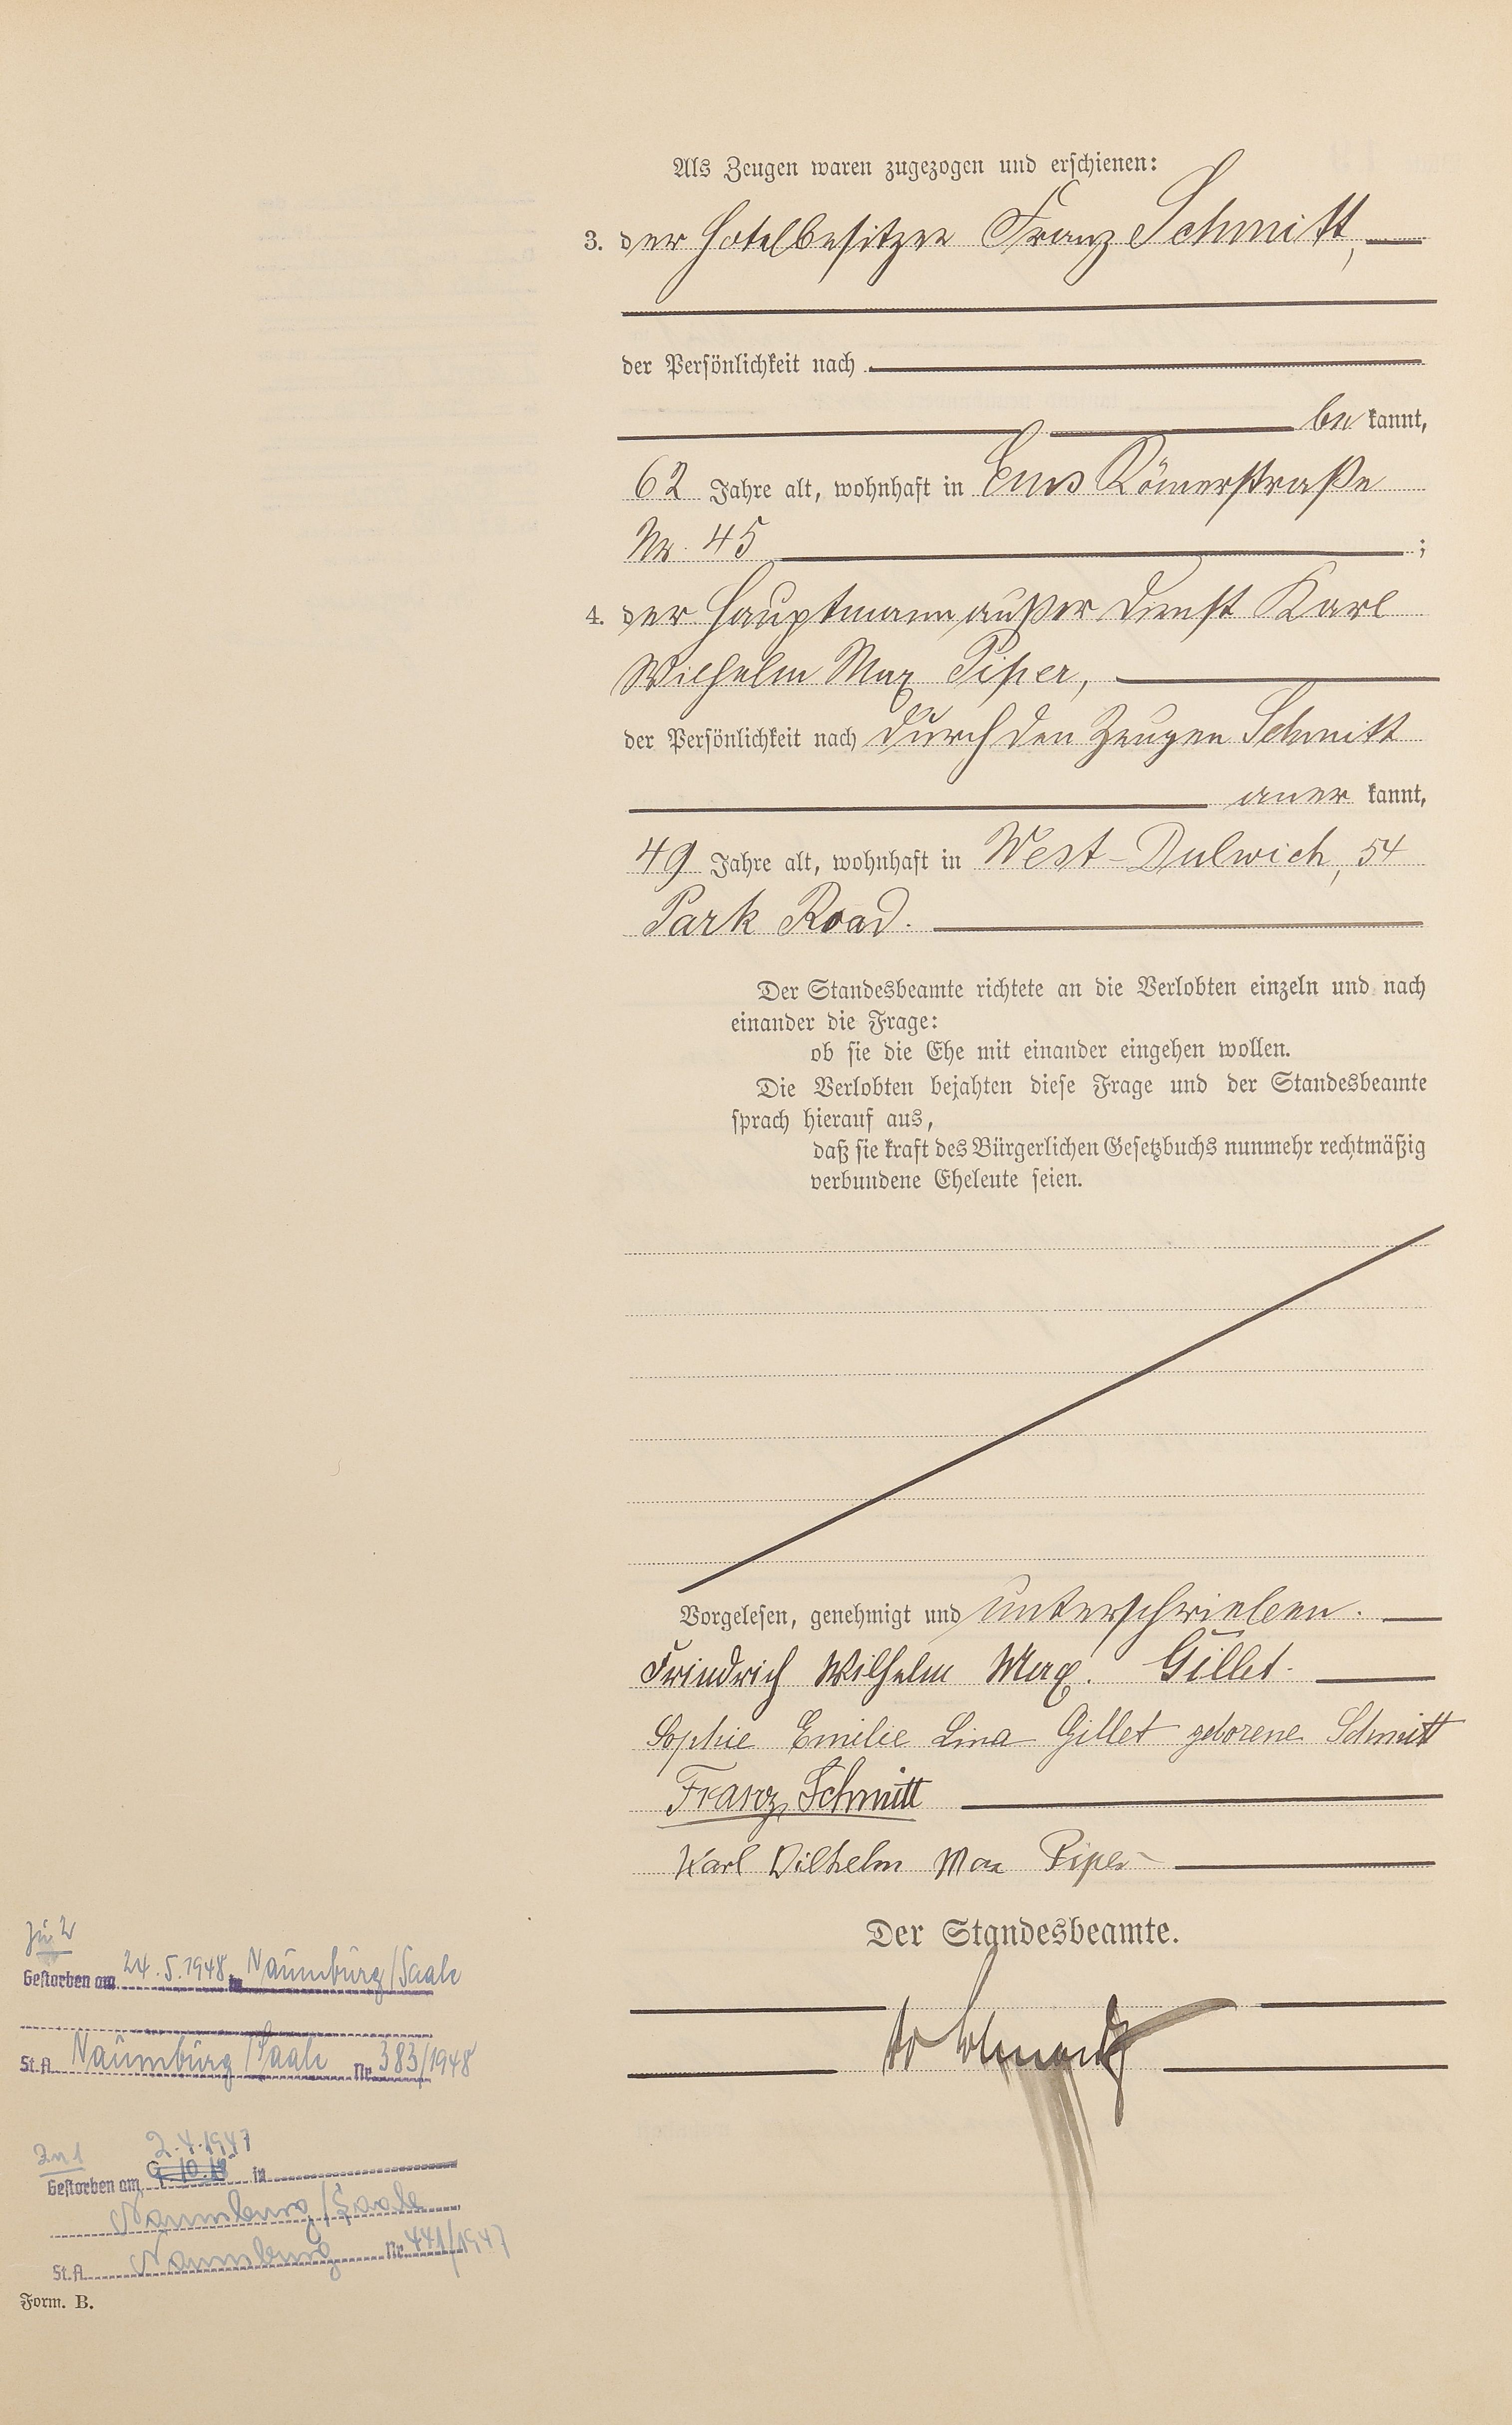 Als Zeugen waren zugezogen und erschienen:
3. der Hotelbesitzer Franz Schmitt,
der Persönlichkeit nach
be kannt,
62 Jahre alt, wohnhaft in Ems Römerstraße
Nr. 45 ;
4. der Hauptmann außer Dienst Karl
Wilhelm Max Piper,
der Persönlichkeit nach durch den Zeugen Schmitt
aner kannt,
49 Jahre alt, wohnhaft in West-Dulwich, 54
Park Road.
Der Standesbeamte richtete an die Verlobten einzeln und nach
einander die Frage:
ob sie die Ehe mit einander eingehen wollen.
Die Verlobten bejahten diese Frage und der Standesbeamte
sprach hierauf aus,
daß sie kraft des Bürgerlichen Gesetzbuchs nunmehr rechtmäßig
verbundene Eheleute seien.
Vorgelesen, genehmigt und unterschrieben.
Friedrich Wilhelm Max. Gillet.
Sophie Emilie Lina Gillet geborene Schmitt
Franz Schmitt
Karl Wilhelm Max Piper
Der Standesbeamte.
Zu 2
Gestorben am 24.5.1948 in Naumburg/Saale
St.A. Naumburg/Saale Nr. 383/1948
Zu 1
2.4.1947
Gestorben am in
Naumburg/Saale
St.A. Naumburg Nr. 441/1947
Form. B.